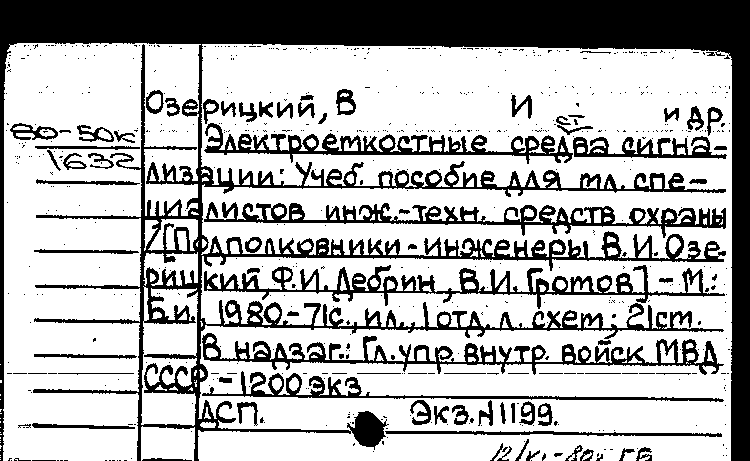 Озерицкий, В И и др.
80-50к
1632
Электроемкостные средства сигна-
лизации: Учеб. пособие для мл. спе-
циалистов инж.-техн. средств охраны
/[Подполковники-инженеры В.И. Озе-
рицкий, Ф.И. Дебрин, В.И. Громов] - М.:
Б.и., 1980.-71с., ил., 1 отд. л. схем; 21см.
В надзаг.: Гл. упр. внутр. войск МВД
СССР. - 1200 экз.
ДСП. Экз. №1199.